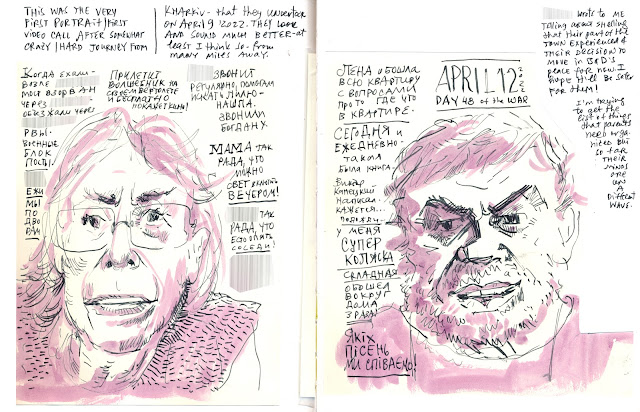 THIS WAS THE VERY
FIRST PORTRAIT/FIRST
VIDEO CALL AFTER SOMEWHAT
CRAZY/HARD JOURNEY FROM
KHARKIV - THAT THEY UNDERTOOK
ON APRIL 9 2022. THEY LOOK
AND SOUND MUCH BETTER - AT
LEAST I THINK SO - FROM
MANY MILES AWAY.
КОГДА ЕХАЛИ -
ВОЗЛЕ
МОСТ ВЗОРВАН
ЧЕРЕЗ
ОБЪЕЗЖАЛИ ЧЕРЕЗ
РВЫ.
ВОЕННЫЕ
БЛОК
ПОСТЫ.
ЕЖИ
МЫ
ПО
ДВО
РАМ
ПРИЛЕТИТ
ВОЛШЕБНИК НА
СВОЕМ ВЕРТОЛЕТЕ
И БЕСПЛАТНО
ПОКАЖЕТ КИНО!
ЗВОНИЛ
РЕГУЛЯРНО, ПОМОГАЛИ
ИСКАТЬ МИЛНО-
НАШЛА.
ЗВОНИЛИ
БОГДАНУ.
МАМА ТАК
РАДА, ЧТО
МОЖНО
СВЕТ
ВЕЧЕРОМ!
ТАК
РАДА, ЧТО
ЕСТЬ ОПЯТЬ
СОСЕДИ!
ЛЕНА ОБОШЛА
ВСЮ КВАРТИРУ
С ВОПРОСАМИ
ПРО ТО ГДЕ ЧТО
В КВАРТИРЕ.
СЕГОДНЯ И
ЕЖЕДНЕВНО-
ТАКАЯ
БЫЛА КНИГА.
ВИКТОР
КОНЕЦКИЙ
НАПИСАЛ.
КАЖЕТСЯ...
ПОДОЖДИ...
У МЕНЯ
СУПЕР
КОЛЯСКА
СКЛАДНАЯ
ОБОШЕЛ
ВОКРУГ
ДОМА
3 РАЗА!
ЯКІХ
ПІСЕНЬ
МИ СПІВАЄМО!
APRIL 12 2022
DAY 48 OF THE WAR
WROTE TO ME
TELLING ABOUT SHELLING
THAT THEIR PART OF THE
TOWN EXPERIENCED &
THEIR DECISION TO
MOVE IN B&D'S
PLACE FOR NOW. I
HOPE IT'LL BE SAFER
FOR THEM!
I'M TRYING
TO GET THE
LIST OF THINGS
THAT PARENTS
NEED ORGA
NIZED BUT
SO FAR
THEIR
MINDS
ARE
ON
A
DIFFERENT
WAVE.